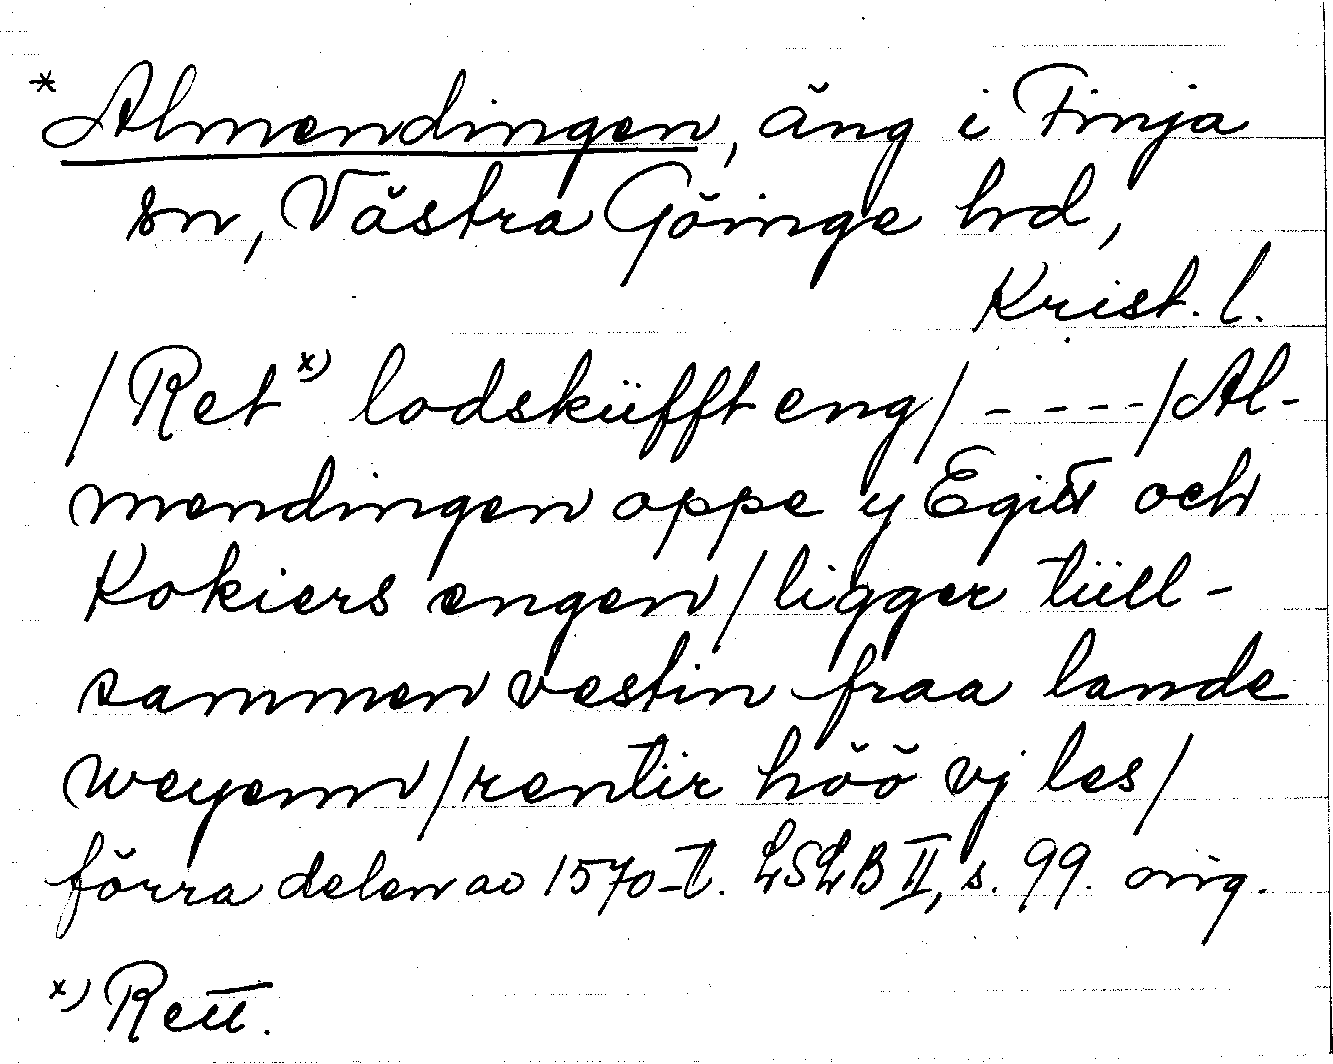 * Almendingen, äng i Finja
sn, Västra Göinge hd,
Krist. l.
/Ret x) lodsküfft eng/ - - - - /Al-
mendingen oppe y Egitt och
Kokiers engen/ligger tüll-
sammen vestin fraa lande
weyenn/rentir höö vj les/
förra delen av 1570-t. LSLB II, s. 99. orig.
x) Rett.